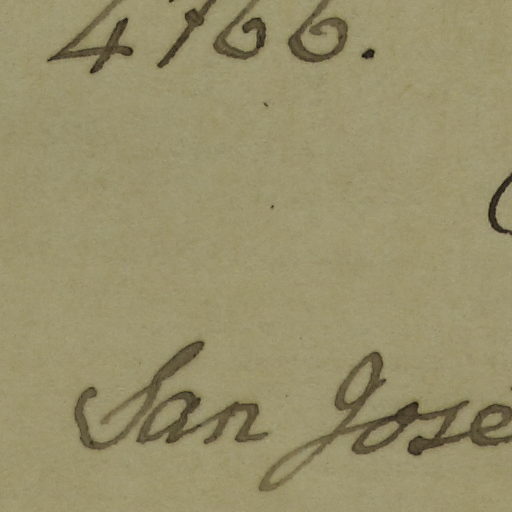 4766.
San José